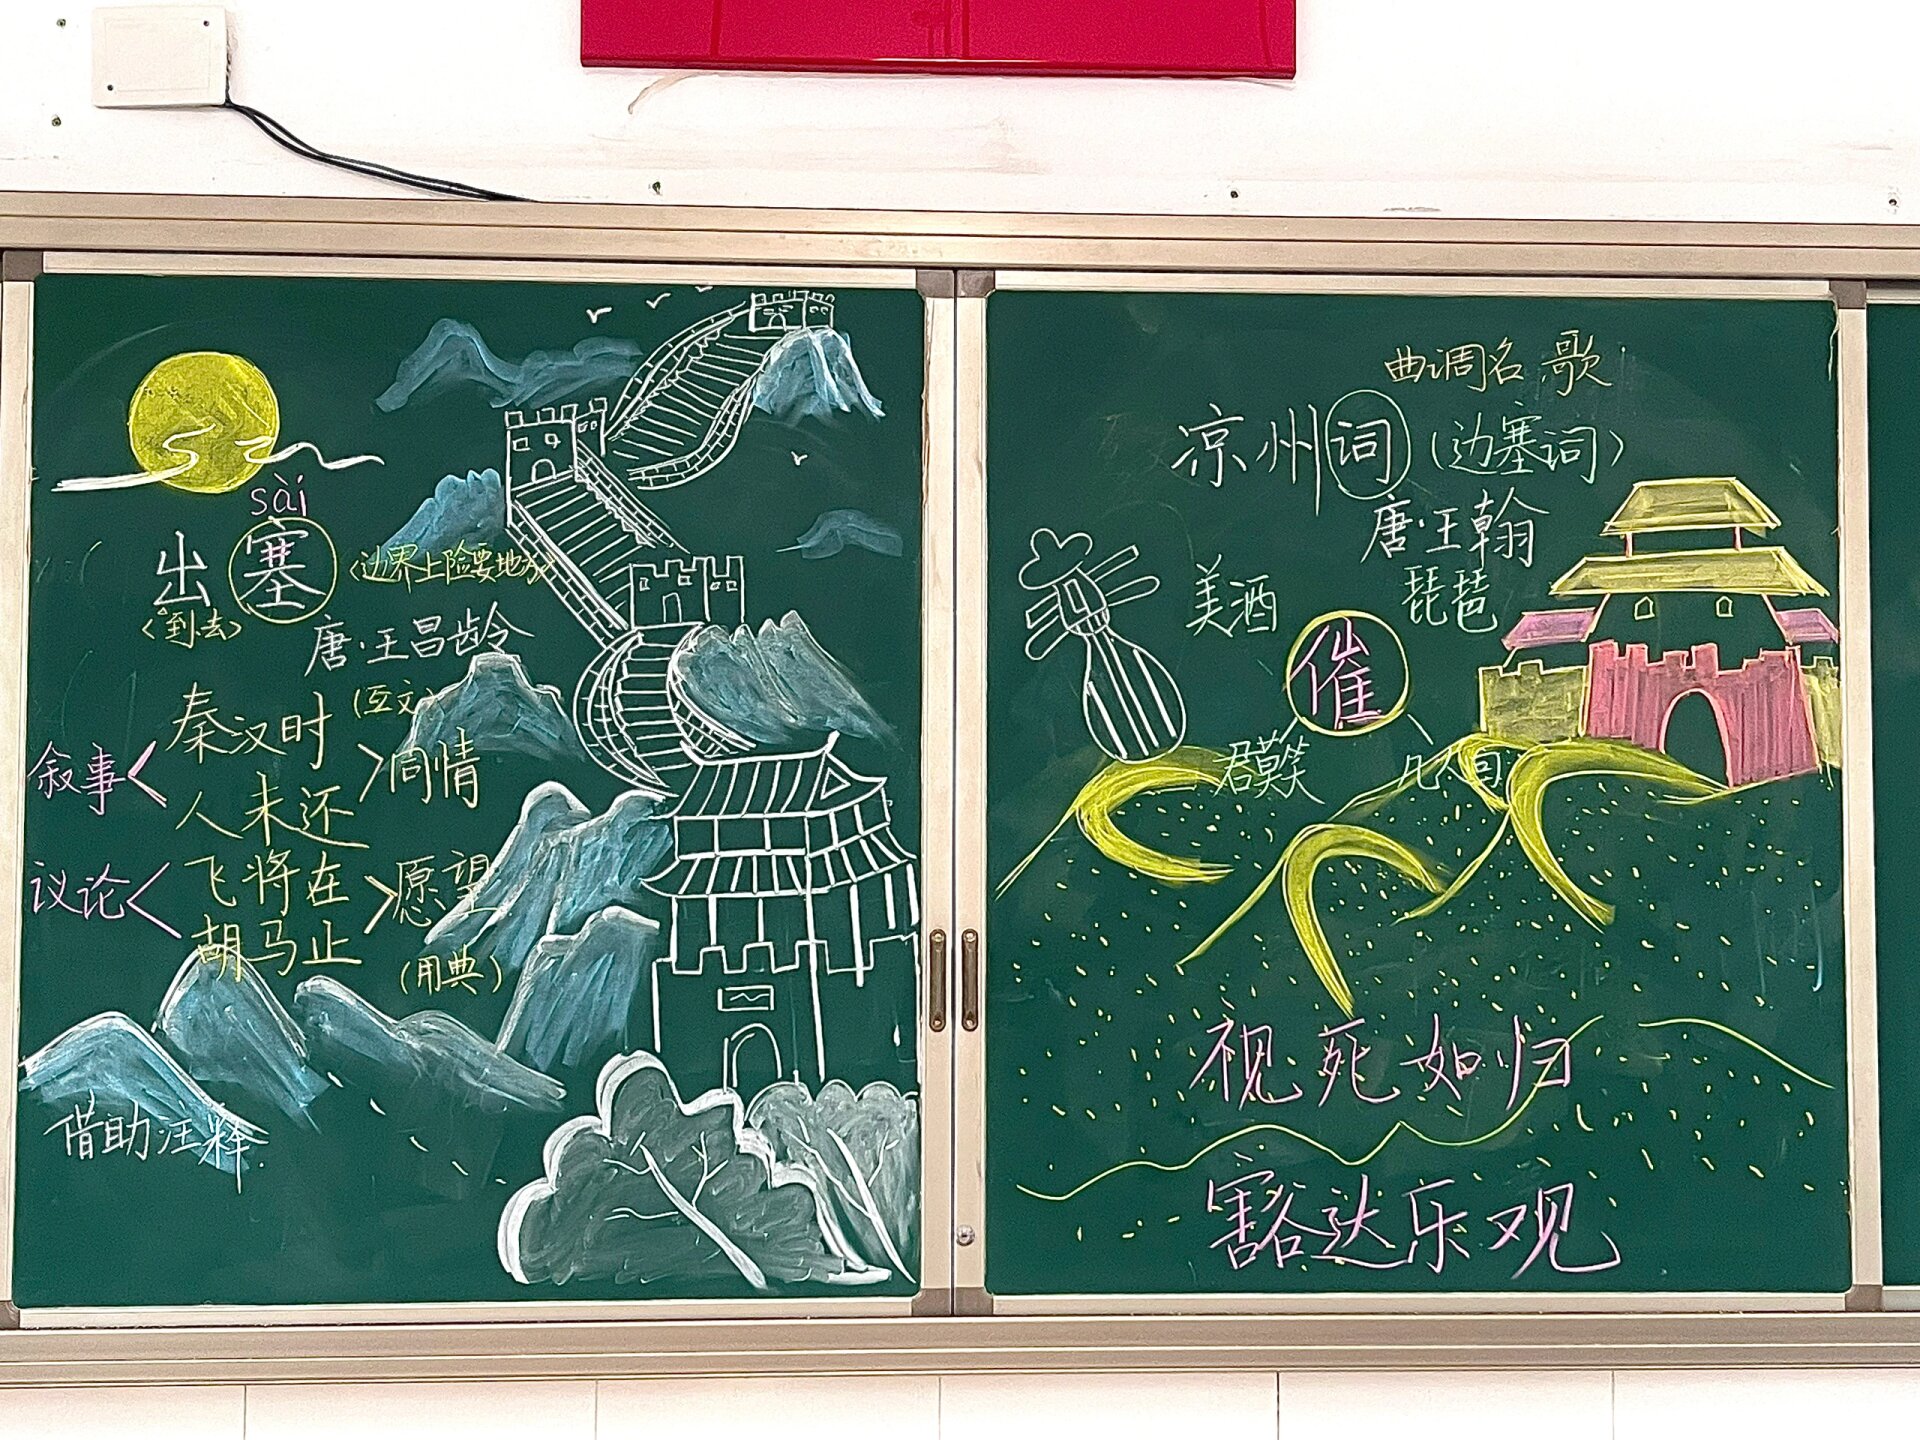 sài
出塞(边界上险要地方)
(到去)
唐·王昌龄
秦汉时(互文)
叙事 人未还 同情
议论 飞将在 愿望
胡马止(用典)
借助注释
曲调名 歌
凉州词(边塞词)
唐·王翰
美酒 琵琶
催
君莫笑 几人回
视死如归
豁达乐观